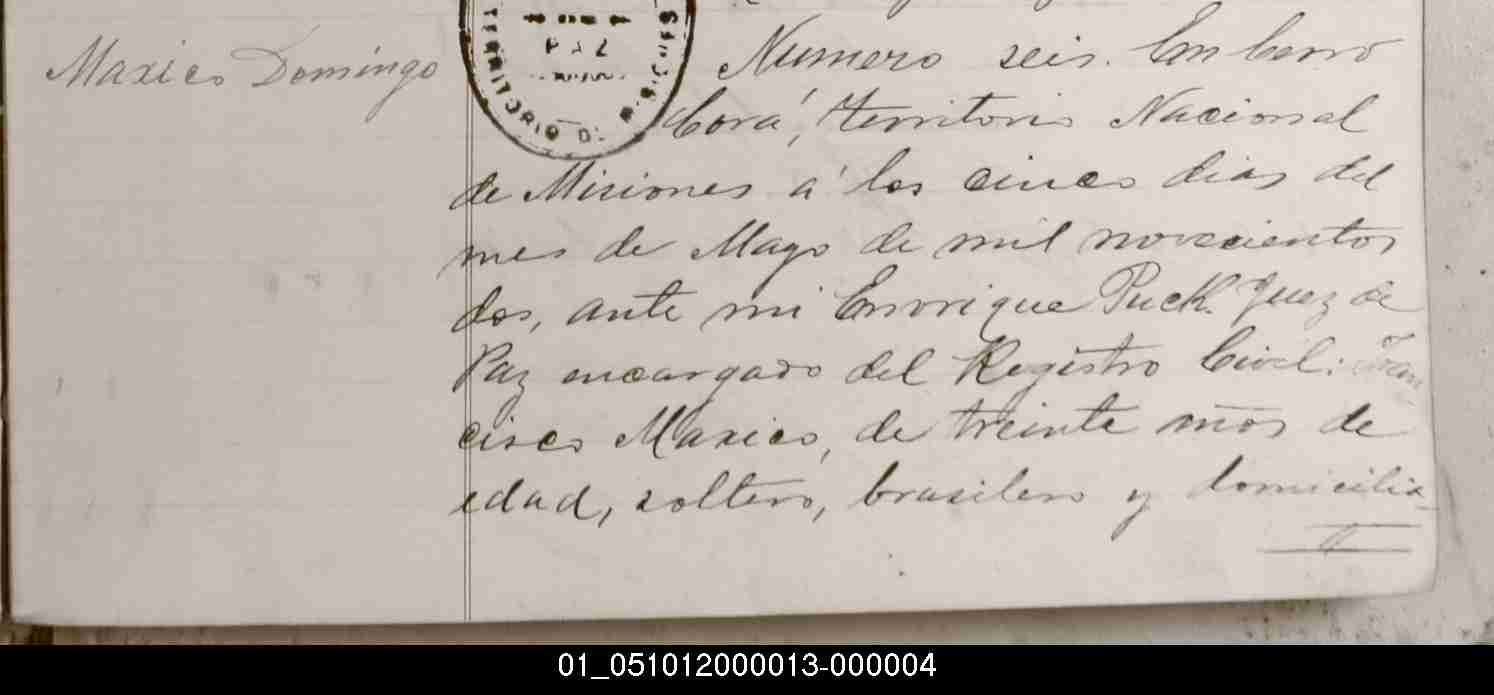 Maxico Domingo
PAZ
Numero seis. En Cerro
Corá, territorio Nacional
de Misiones á los cinco dias del
mes de Mayo de mil novecientos
dos, ante mi Enrrique Puck. Juez de
Paz encargado del Registro Civil: Fran
cisco Maxico, de treinta años de
edad, soltero, brasilero y domicilia-
01_051012000013-000004